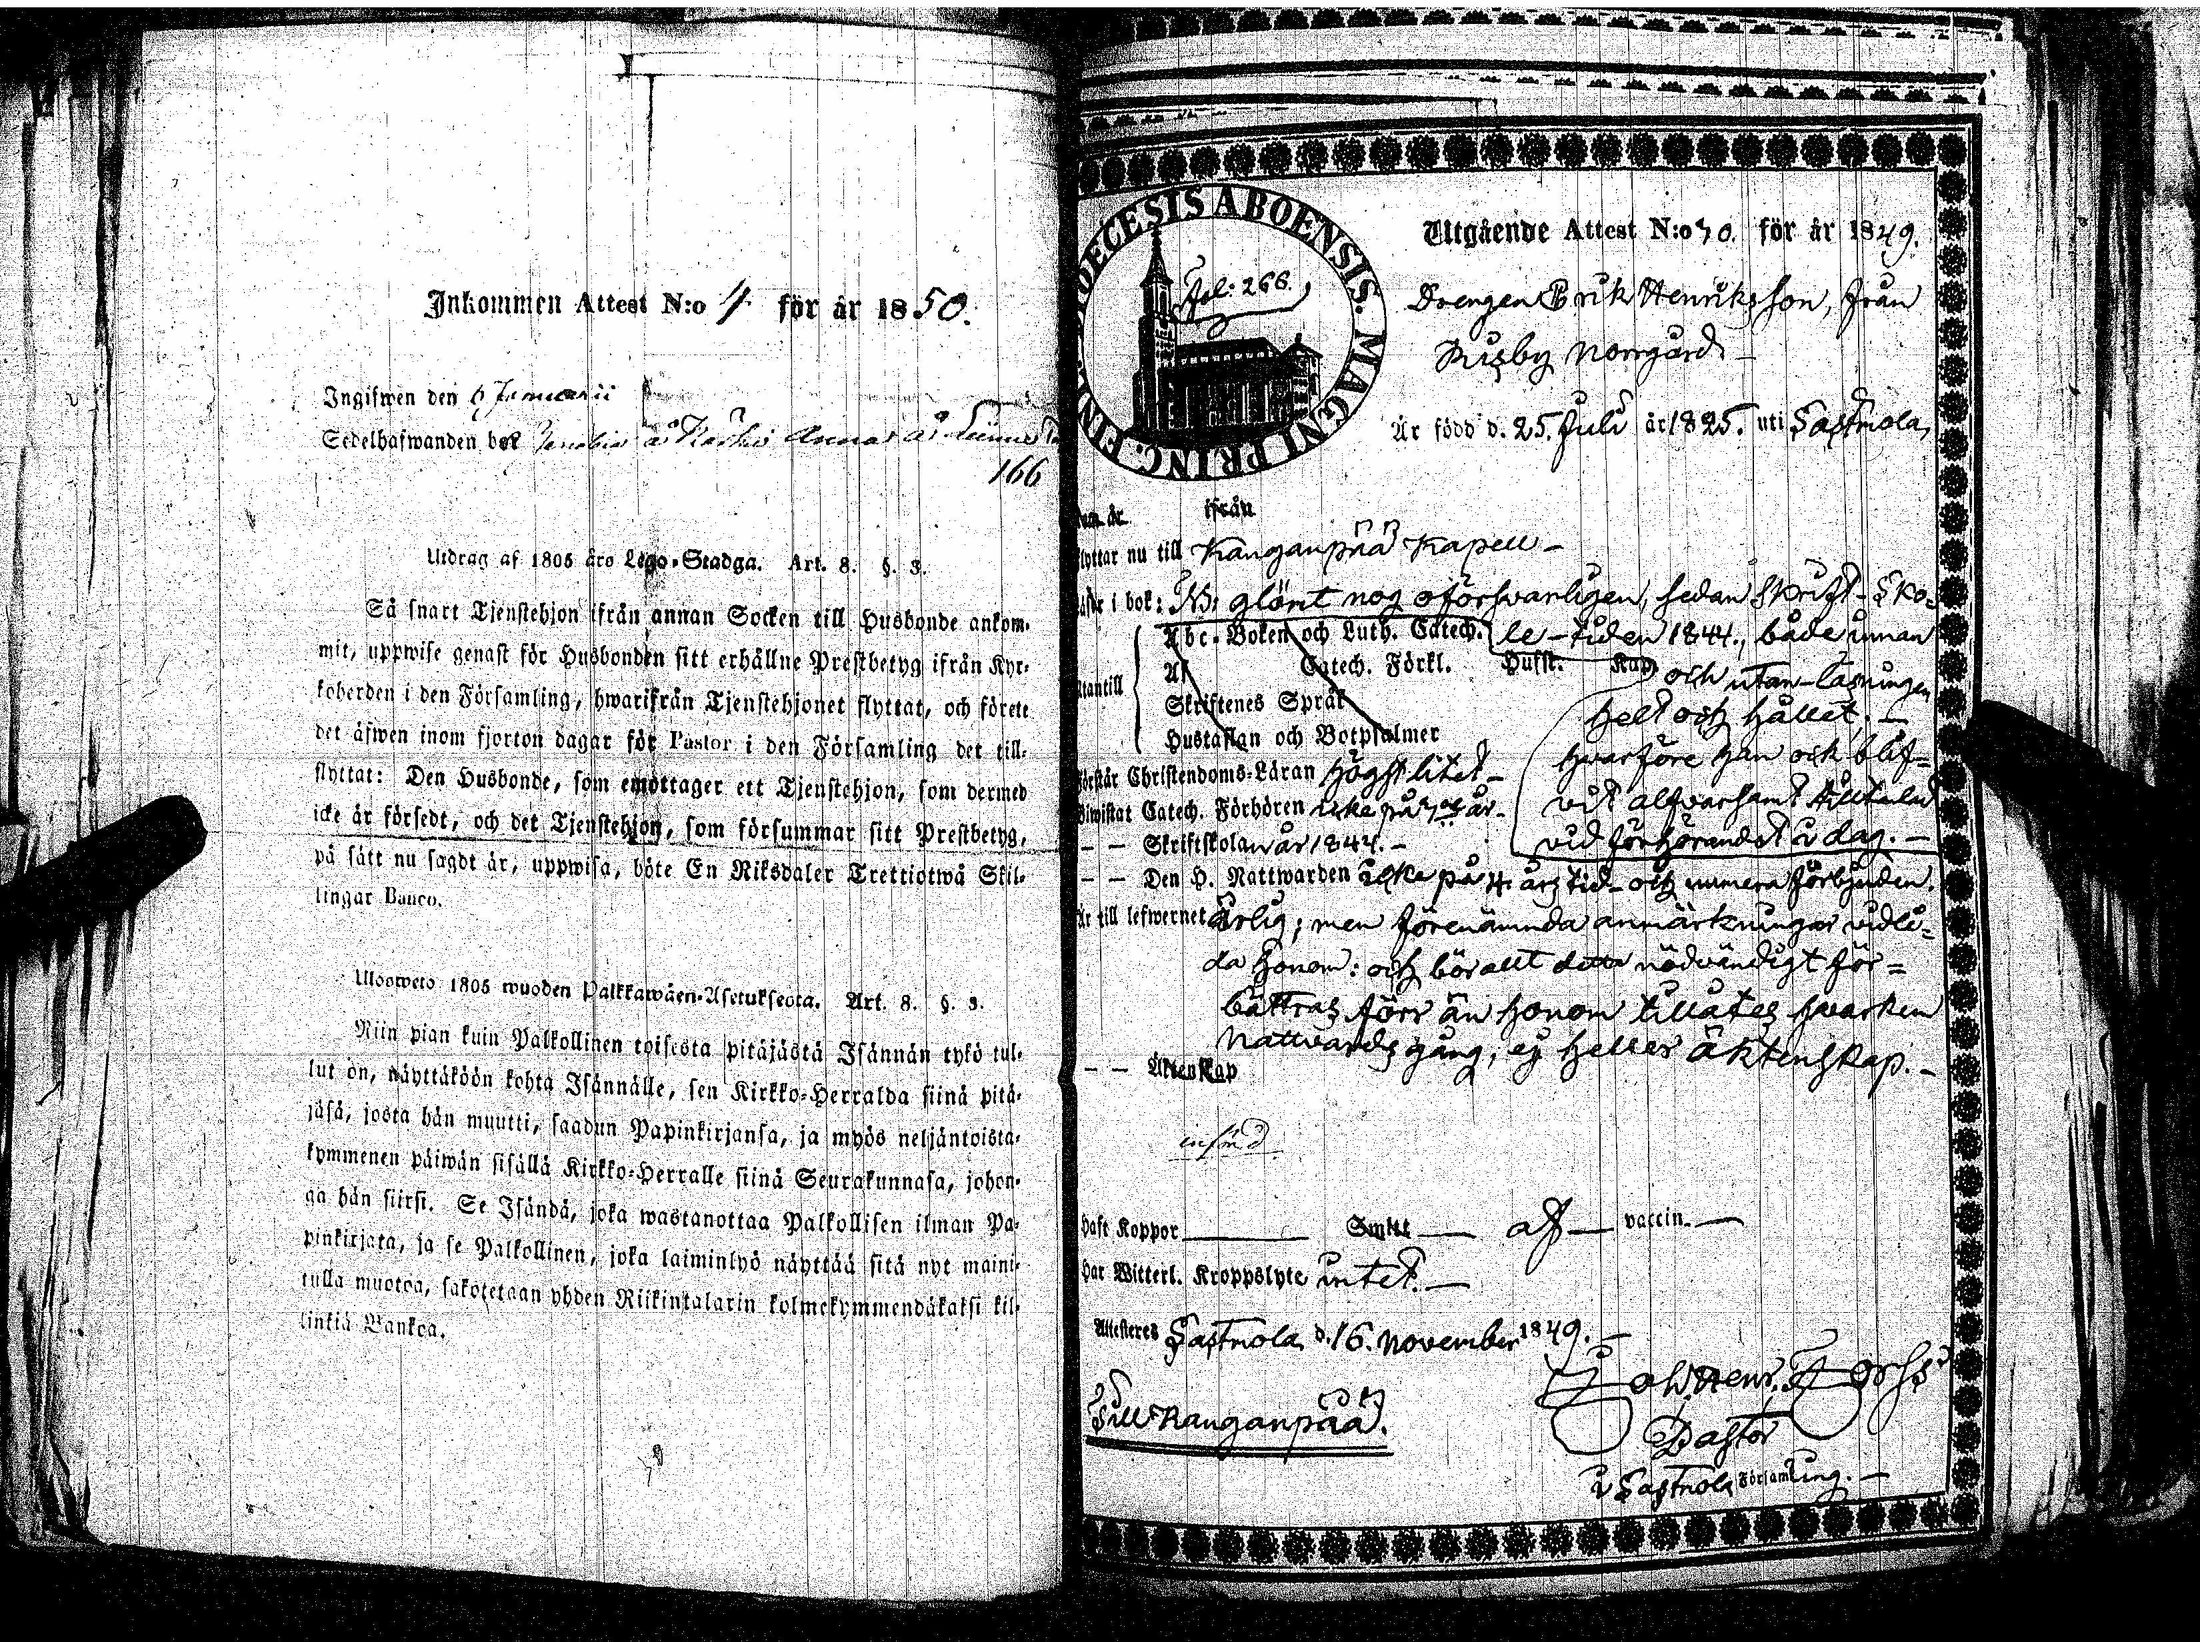 Inkommen Attest N:o 4 för år 1850.
Ingifwen den 6 Januarii
Sedelhafwanden bor
166
Utdrag af 1805 års Lego-Stadga. Art. 8. §. 3.
Så snart Tjenstehjon ifrån annan Socken till Husbonde ankom-
mit, uppwise genast för Husbonden sitt erhållne Prestbetyg ifrån Kyr-
koherden i den Församling, hwarifrån Tjenstehjonet flyttat, och förete
det äfwen inom fjorton dagar för Pastor i den Församling det till-
flyttat: Den Husbonde, som emottager ett Tjenstehjon, som dermed
icke är försedt, och det Tjenstehjon, som försummar sitt Prestbetyg,
på sätt nu sagdt är, uppwisa, böte En Riksdaler Trettiotwå Skil-
lingar Banco.
Ulosweto 1805 wuoden Palkkawäen-Asetuksesta. Art. 8. §. 3.
Niin pian kuin Palkollinen toisesta pitäjästä Isännän tykö tul-
lut on, näyttäköön kohta Isännälle, sen Kirkko-Herralda siinä pitä-
jäsä, josta hän muutti, saadun Papinkirjansa, ja myös neljäntoista-
kymmenen päiwän sisällä Kirkko-Herralle siinä Seurakunnasa, johon-
ga hän siirsi. Se Isändä, joka wastanottaa Palkollisen ilman Pa-
pinkirjata, ja se Palkollinen, joka laiminlyö näyttää sitä nyt maini-
tulla muotoa, sakotetaan yhden Riikintalarin kolmekymmendäkaksi kil-
linkiä Bankoa.
DIŒCESIS ABOENSIS. MAGNI PRINC. FINL.
Fol: 266.
Utgående Attest N:o 70. för år 1849.
Drengen Erik Henriksson, från
Risby Norrgård
Är född d. 25. Juli år 1825. uti Sastmola,
ifrån
flyttar nu till Kanganpää Kapell
i bok: NB: glömt nog oförsvarligen, sedan Skrift-Sko-
Abc-Boken och Luth. Catech. le-tiden 1844., både innan
Catech. Förkl. Hufst. och utan-läsningen
utantill Skriftenes Språk helt och hållet;
Hustaflan och Botpsalmer hvarföre han ock blif-
Förstår Christendoms-Läran högst litet vit alfvarsamt tilltalad
Biwistat Catech. Förhören icke på år vid förhörandet i dag.
Skriftskolan år 1844.
Den H. Nattwarden icke på 4 års tid och numera förbjuden.
Är till lefwernet Ärlig; men förenämnda anmärkningar vidlå-
da honom: och bör allt detta nödvändigt för-
bättras förr än honom tillåtes hvarken
Nattvards gång, ej heller äktenskap.
Äktenskap
Haft Koppor Smitt af vaccin.
Har Witterl. Kroppslyte intet.
Attesteras Sastmola d. 16. November 1849.
Joh. Henr. Forss
Till Kanganpää. Pastor
i Sastmola Församling.